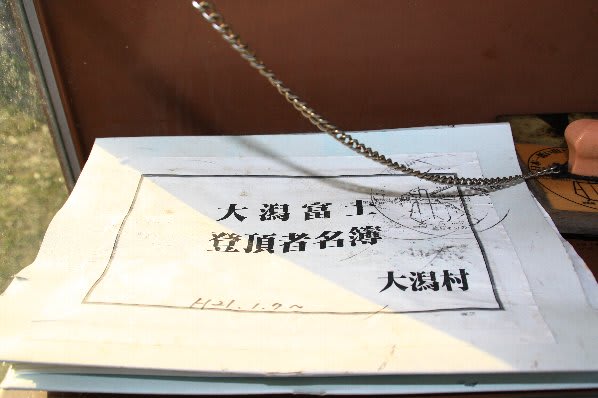 大潟富士
登頂者名簿
大潟村
H21.1.9～